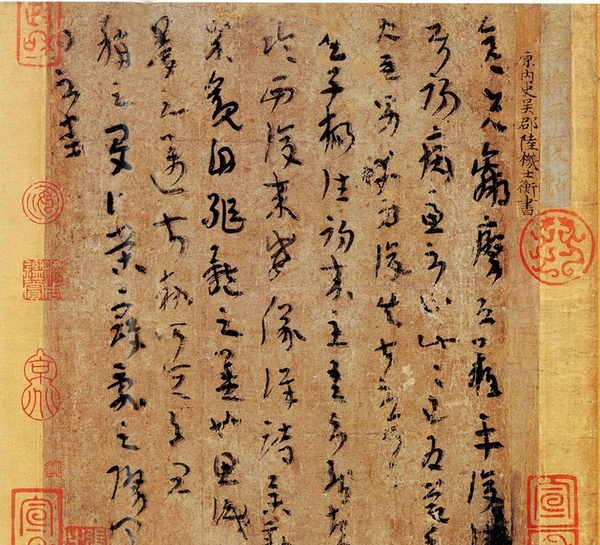 原内史吳郡陸機士衡書
彦先羸瘵恐難平復
初病慮不止此此已為慶
使唯男幸為復失前憂耳
吳子楊往初來主吾不能盡
臨西復來威儀詳跱舉動
成觀自軀體之美也思識
量之邁前執所恒有宜
稱之夏伯榮寇亂之際聞
問不悉